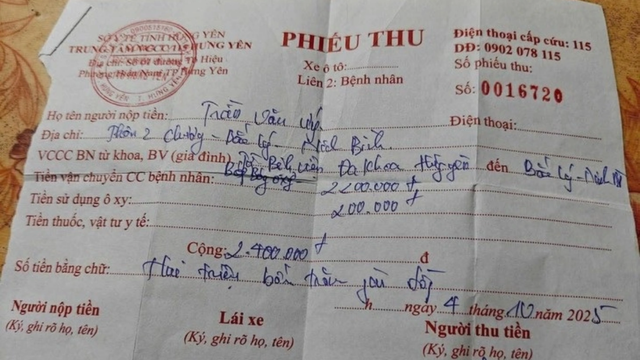 SỞ Y TẾ TỈNH HƯNG YÊN
TRUNG TÂM VCCC 115 HƯNG YÊN
Địa chỉ: Số 01 đường Tô Hiệu
Phường Hiến Nam TP Hưng Yên
HƯNG YÊN T. HƯNG YÊN
PHIẾU THU
Xe ô tô:
Liên 2: Bệnh nhân
Điện thoại cấp cứu: 115
DĐ: 0902 078 115
Số phiếu thu:
Số: 0016720
Họ tên người nộp tiền: Trần Văn
Điện thoại:
Địa chỉ: Thôn 2 - Bắc Lý - Ninh Bình
VCCC BN từ khoa, BV (gia đình) Bệnh viện Đa khoa Hưng Yên đến Bắc Lý - Ninh
Tiền vận chuyển CC bệnh nhân: 2200.000 đ
Tiền sử dụng ô xy: 200.000
Tiền thuốc, vật tư y tế:
Cộng: 2.400.000 đ đ
Số tiền bằng chữ: Hai triệu bốn trăm đồng
h ngày 4 tháng 10 năm 2025
Người nộp tiền
(Ký, ghi rõ họ, tên)
Lái xe
(Ký, ghi rõ họ, tên)
Người thu tiền
(Ký, ghi rõ họ, tên)